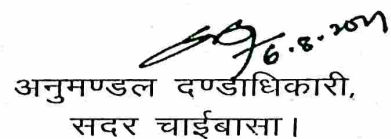 6.8.2011
अनुमण्डल दण्डाधिकारी,
सदर चाईबासा।